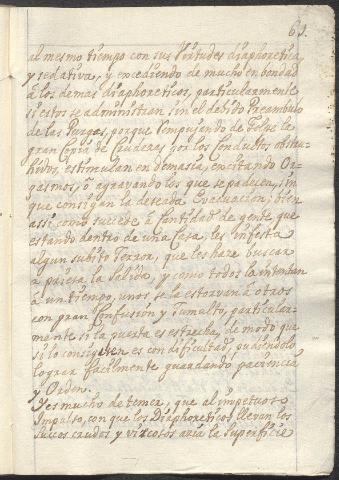 61.
al mesmo tiempo con sus Virtudes diaphoretica,
y sedativa, y excediendo de mucho en bondad
à los demas Diaphoreticos, particularmente
si estos se administran sin el debido Preambulo
de las Purgas, porque empujando de Golpe la
gran Copia de por los Conductos obstru-
hidos, estimulan en demasia, excitando Or-
gasmos, ò agravando los que se padecen, sin
que consigan la deseada Evacuacion; bien
assi como sucede à Cantidad de gente, que
estando dentro de una Casa, les infesta
algun subito Terror, que les haze buscar
a priesa la Salida, y como todos la intentan
à un tiempo, unos se la estorvan à otros
con gran Confusion y Tumulto, particular-
mente si la puerta es estrecha, de modo que
si lo consiguen es con dificultad, pudiendolo
lograr facilmente guardando paciencia
y Orden.
Y es mucho de temer, que al impetuoso
Impulso, con que los Diaphoreticos llevan los
Succos crudos y viscosos azia la Superficie